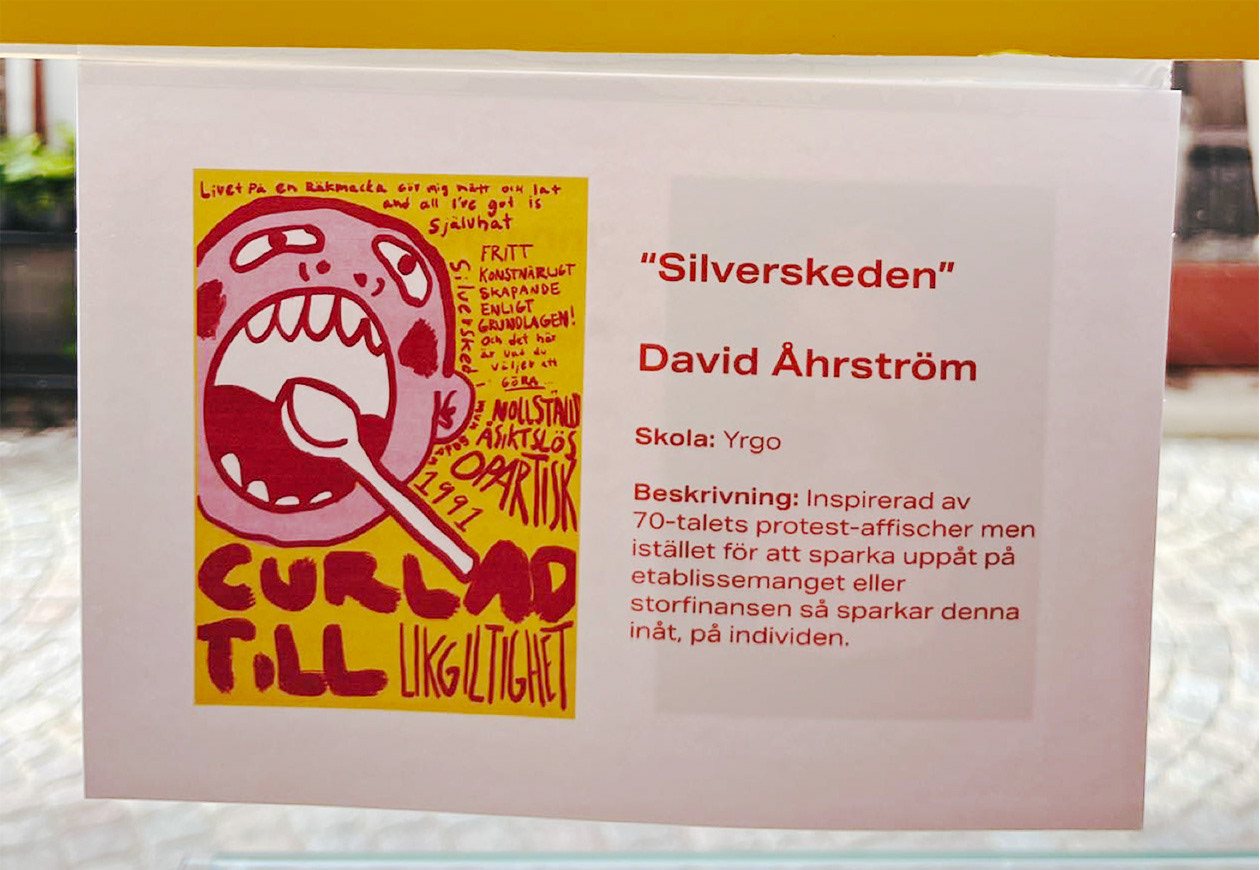 Livet på en Räkmacka gör mig mätt och lat
and all I've got is
Självhat
FRITT
KONSTNÄRLIGT
SKAPANDE
ENLIGT
GRUNDLAGEN!
och det här
är vad du
väljer att
GÖRA
Silversked i
munnen
1991
NOLLSTÄLLD
ÅSIKTSLÖS
OPARTISK
CURLAD
TILL LIKGILTIGHET
"Silverskeden"
David Åhrström
Skola: Yrgo
Beskrivning: Inspirerad av
70-talets protest-affischer men
istället för att sparka uppåt på
etablissemanget eller
storfinansen så sparkar denna
inåt, på individen.